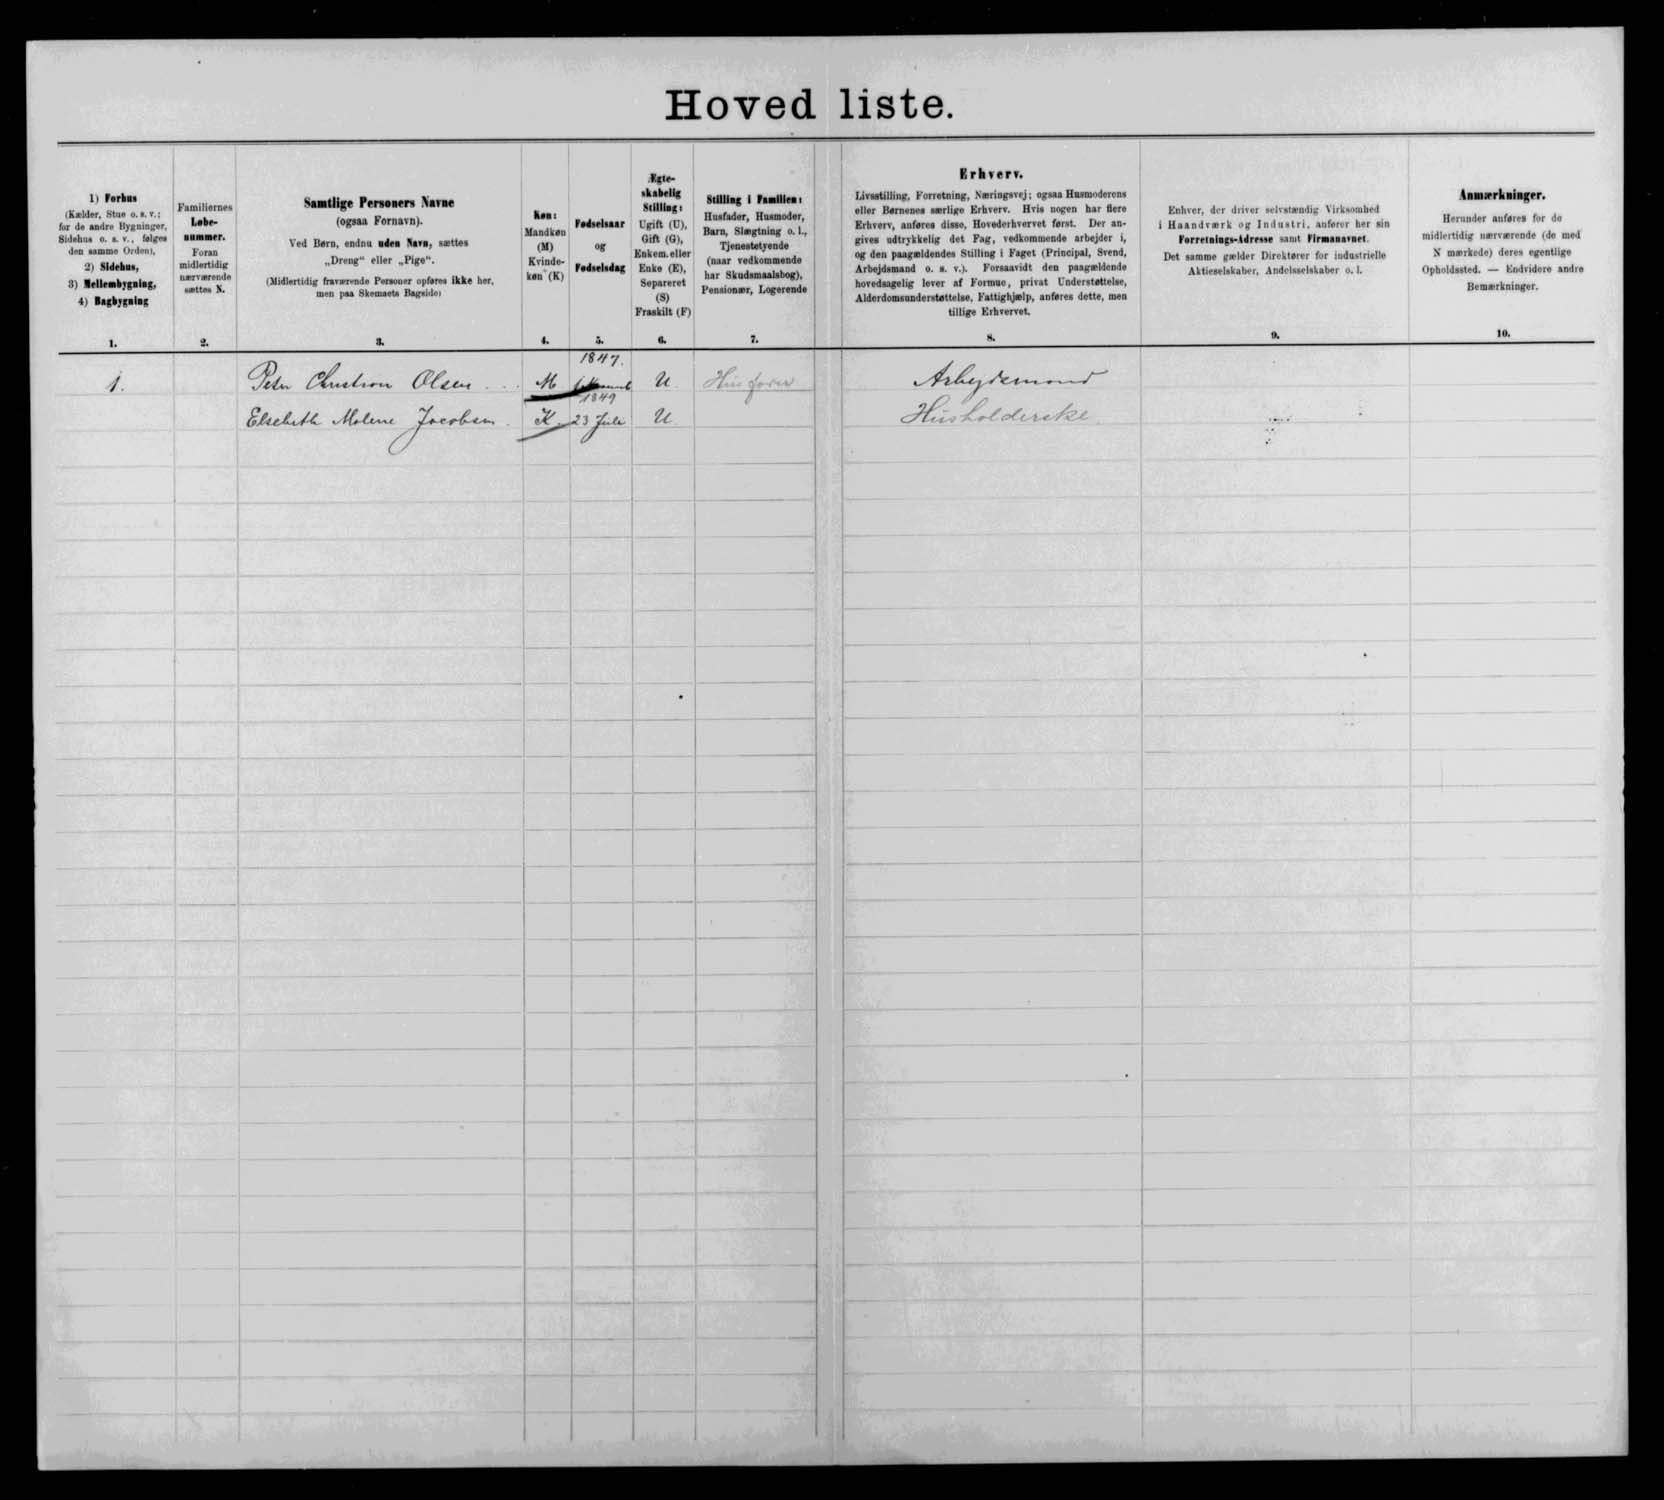 Hoved liste.
1) Forhus
(Kælder, Stue o. s. v.;
for de andre Bygninger,
Sidehus o. s. v., følges
den samme Orden),
2) Sidehus,
3) Mellembygning,
4) Bagbygning
1.
Familiernes
Løbe-
nummer.
Foran
midlertidig
nærværende
sættes N.
2.
Samtlige Personers Navne
(ogsaa Fornavn).
Ved Børn, endnu uden Navn, sættes
„Dreng“ eller „Pige“.
(Midlertidig fraværende Personer opføres ikke her,
men paa Skemaets Bagside)
3.
Køn:
Mandkøn
(M)
Kvinde-
køn (K)
4.
Fødselsaar
og
Fødselsdag
5.
Ægte-
skabelig
Stilling:
Ugift (U),
Gift (G),
Enkem. eller
Enke (E),
Separeret
(S)
Fraskilt (F)
6.
Stilling i Familien:
Husfader, Husmoder,
Barn, Slægtning o. l.,
Tjenestetyende
(naar vedkommende
har Skudsmaalsbog),
Pensionær, Logerende
7.
Erhverv.
Livsstilling, Forretning, Næringsvej; ogsaa Husmoderens
eller Børnenes særlige Erhverv. Hvis nogen har flere
Erhverv, anføres disse, Hovederhvervet først. Der an-
gives udtrykkelig det Fag, vedkommende arbejder i,
og den paagældendes Stilling i Faget (Principal, Svend,
Arbejdsmand o. s. v.). Forsaavidt den paagældende
hovedsagelig lever af Formue, privat Understøttelse,
Alderdomsunderstøttelse, Fattighjælp, anføres dette, men
tillige Erhvervet.
8.
Enhver, der driver selvstændig Virksomhed
i Haandværk og Industri, anfører her sin
Forretnings-Adresse samt Firmanavnet.
Det samme gælder Direktører for industrielle
Aktieselskaber, Andelsselskaber o. l.
9.
Anmærkninger.
Herunder anføres for de
midlertidig nærværende (de med
N mærkede) deres egentlige
Opholdssted. — Endvidere andre
Bemærkninger.
10.
1847.
1. Peter Christian Olsen M U. Husfader Arbejdsmand
1849
Elsebeth Malene Jacobsen. K. 23 Juli U. Husholderske.